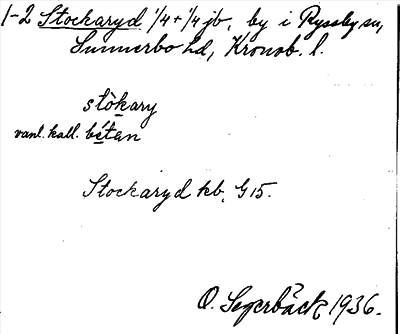 1-2 Stockaryd 1/4+1/4 jb, by i Ryssby sn,
Sunnerbo hd, Kronob. l.
stòkary
vanl. kall. bétan
Stockaryd kb. G15.
O. Segerbäck 1936.